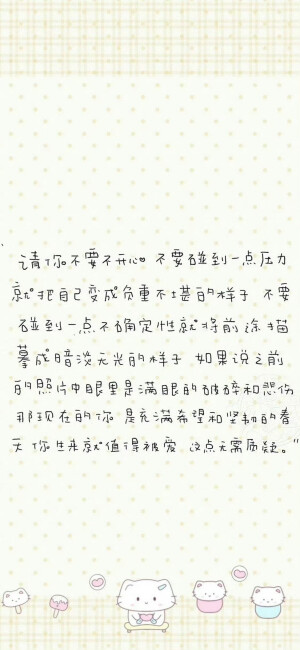 请你不要不开心 不要碰到一点压力
就把自己变成负重不堪的样子 不要
碰到一点不确定性就将前途描
摹成暗淡无光的样子 如果说之前
的照片中眼里是满眼的破碎和悲伤
那现在的你 是充满希望和坚韧的春
天 你生来就值得被爱 这点无需质疑。”